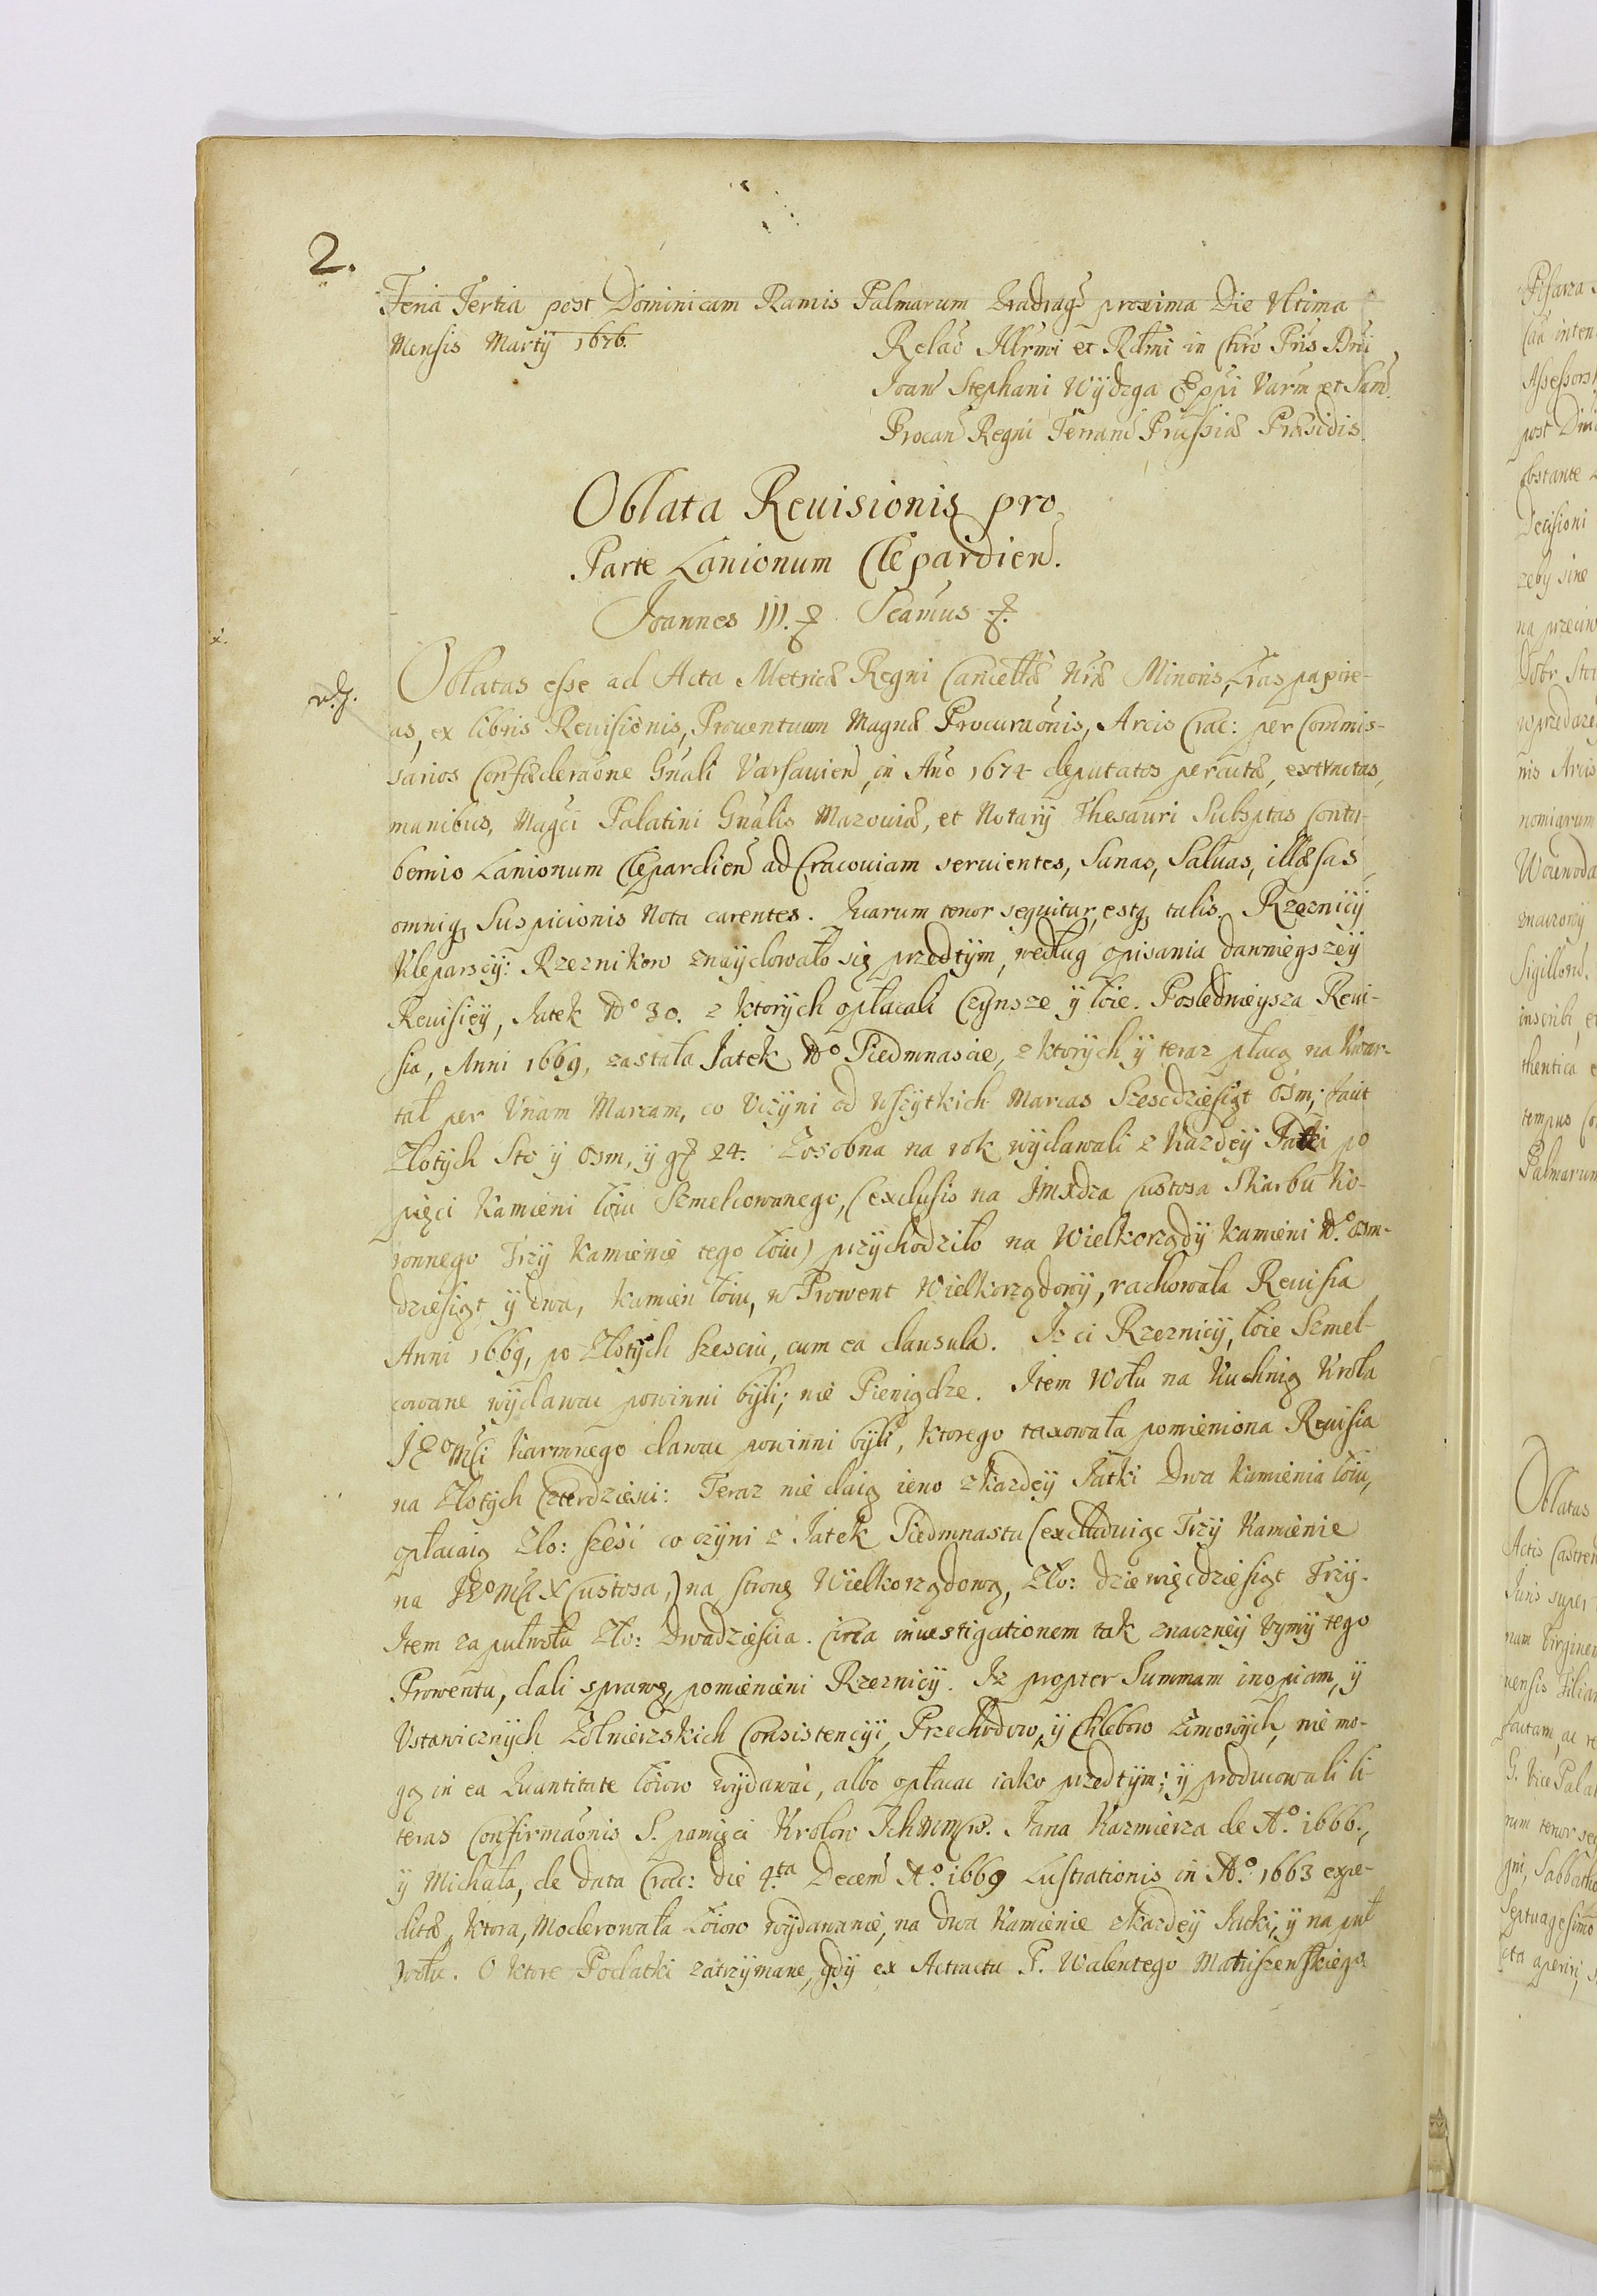 2.
Feria Tertia post Dominicam Ramis Palmarum Quadrags proxima Die Vltima
Mensis Martÿ 1676.
Relaõ Illrmi et Rdmi in Chro Pris Dni
Joan Stephani Wÿdzga Eppi Varm et Sam.
Procan Regni Terrarũ Prussiæ Præsidis.
Oblata Reuisionis pro
Parte Lanionum Clepardien.
Joannes III. Seamus
Oblatas esse ad Acta Metricæ Regni Cancellæ Nræ Minoris, Lras papire-
as, ex libris Reuisionis, Prouentuum Magnæ Procuraõnis, Arcis Crac: per Commis-
sarios Confœderaõne Gnali Varsauien, in Año 1674 deputatos peractæ, extractas,
manibus, Magci Palatini Gnalis Mazouiæ, et Notarÿ Thesauri Subsptas Contu-
bernio Lanionum Clepardien ad Cracouiam seruientes, Sanas, Saluas, illæsas,
omniq Suspicionis Nota carentes. Quarum tenor sequitur, estq talis. Rzeznicÿ
Kleparscÿ: Rzeznikow znaÿdowało się przedtÿm, według opisania dawnieÿszeÿ
Reuisieÿ, Jatek No 30. z ktorÿch opłacali Czÿnsze ÿ łoie. Poslednieÿsza Reui-
sia, Anni 1669, zastała Jatek No Siedmnascie, z ktorÿch ÿ teraz płacą na Kwar-
tał per Vnam Marcam, co Vczÿni od wszÿtkich Marcas Szescdziesiąt Osm, facit
Złotÿch Sto ÿ osm, ÿ gr 24. Zosobna na rok wÿdawali z Kazdeÿ Jatki po
pięci Kamieni łoiu Szmelcowanego, (exclusis na Jmxdza Custosa Skarbu Ko-
ronnego Trzÿ Kamienie tego łoiu) przÿchodziło na Wielkorządÿ Kamieni No. osm-
dziesiąt ÿ dwa, Kamien łoiu, w Prowent Wielkorządowÿ, rachowała Reuisia
Anni 1669, po Złotÿch szesciu, cum ea clausula. Iz ci Rzeznicÿ, łoie Szmel-
cowane wÿdawac powinni bÿli; nie Pieniądze. Item Wołu na Kuchnią Krola
JEoMsci Karmnego dawac powinni bÿli, Ktorego taxowała pomieniona Reuisia
na Złotÿch Czterdziesci: Teraz nie daią ieno z Kazdeÿ Jatki Dwa Kamienia łoiu,
opłacaią Zło: szesc co czÿni z Jatek Siedmnastu (excluduiąc Trzÿ Kamienie
na JEoMsci X Custosa,) na stronę Wielkorządową, Zło: dziewięcdziesiąt Trzÿ.
Item za pułwołu Zło: Dwadziescia. Circa inuestigationem tak znaczneÿ Vymÿ tego
Prowentu, dali sprawę, pomienieni Rzeznicÿ. Iz propter Summam inopiam, ÿ
Vstawicznÿch Zołnierzskich Consistencÿi, Przechodow, ÿ Chlebow Zimowÿch, nie mo-
gą in ea Quantitate łoiow wÿdawac, albo opłacac iako przedtÿm; ÿ producowali li-
teras Confirmaõnis S. pamięci Krolow IchMMsciow. Jana Kazmierza de Ao. 1666.,
ÿ Michała, de data Crac: die 4.ta Decem Ao. 1669 Lustrationis in Ao. 1663 expe-
ditæ, ktora, Moderowała Łoiow wÿdawanie, na dwa Kamienie z kazdeÿ Jatki, ÿ na puł
wołu. O ktore Podatki zatrzÿmane, gdÿ ex Actractu P. Walentego Matuszewskiego